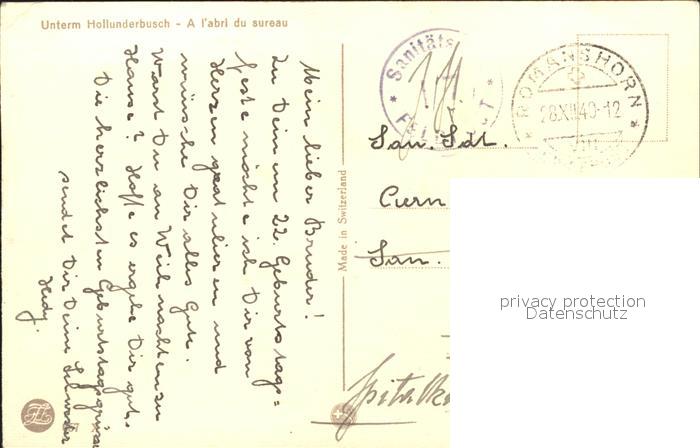 Unterm Hollunderbusch - A l'abri du sureau
Mein lieber Bruder!
Zu Deinem 22. Geburtstags=
feste möchte ich Dir von
Herzen gratulieren und
wünsche Dir alles Gute.
Warst Du an Weihnachten zu
Hause? Hoffe es ergehe Dir gut.
Die herzlichsten Geburtstagsgrüsse
sendet Dir Deine Schwester
Heidy.
Made in Switzerland
Sanitäts
ROMANSHORN
28.XII.40-12
San. Sdt.
San.
privacy protection
Datenschutz